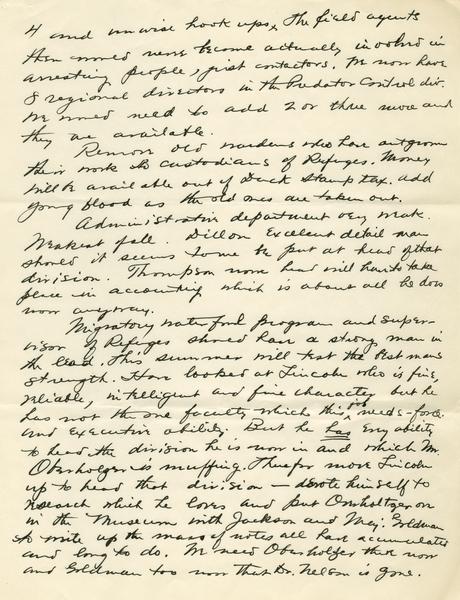 4 and unwise hook ups. The field agents
then need never become actually involved in
arresting people, just contactors. We now have
8 regional directors in the Predator Control div.
We need to add 2 or three more and
they are available.
Remove old wardens who have outgrown
their work to custodians of Refuges. Money
will be available out of Duck Stamp tax. add
young blood as the old ones are taken out.
Administrative department very weak.
Weakest of all. Dillon Excellent detail man
should it seems to me be put at head of that
division. Thompson now head will have to take
place in accounting which is about all he does
now anyway.
Migratory waterfowl program and super-
visor of Refuges should have a strong man in
the lead. This summer will test the best mans
strength. Have looked at Lincoln who is fine,
reliable, intelligent and fine character but he
has not the one faculty which this job needs - force
and executive ability. But he has every ability
to head the division he is now in and which Mr.
Oberholzer is muffing. Therefor move Lincoln
up to head that division — devote himself to
research which he loves and put Oberholtzer on
in the Museum with Jackson and Maj. Goldman
to write up the mass of notes all have accumulated
and long to do. We need Oberholser there now
and Goldman too now that Dr. Nelson is gone.